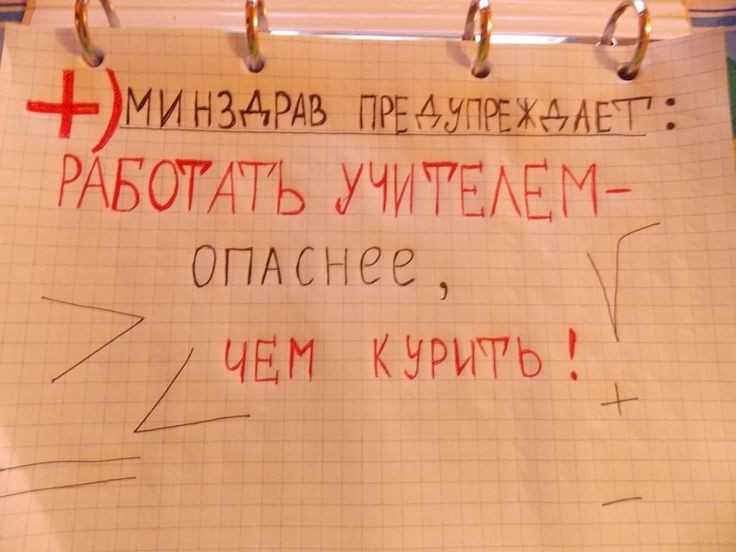 +) МИНЗДРАВ ПРЕДУПРЕЖДАЕТ:
РАБОТАТЬ УЧИТЕЛЕМ-
ОПАСНЕЕ,
ЧЕМ КУРИТЬ!
>
∠
=
√
+
-